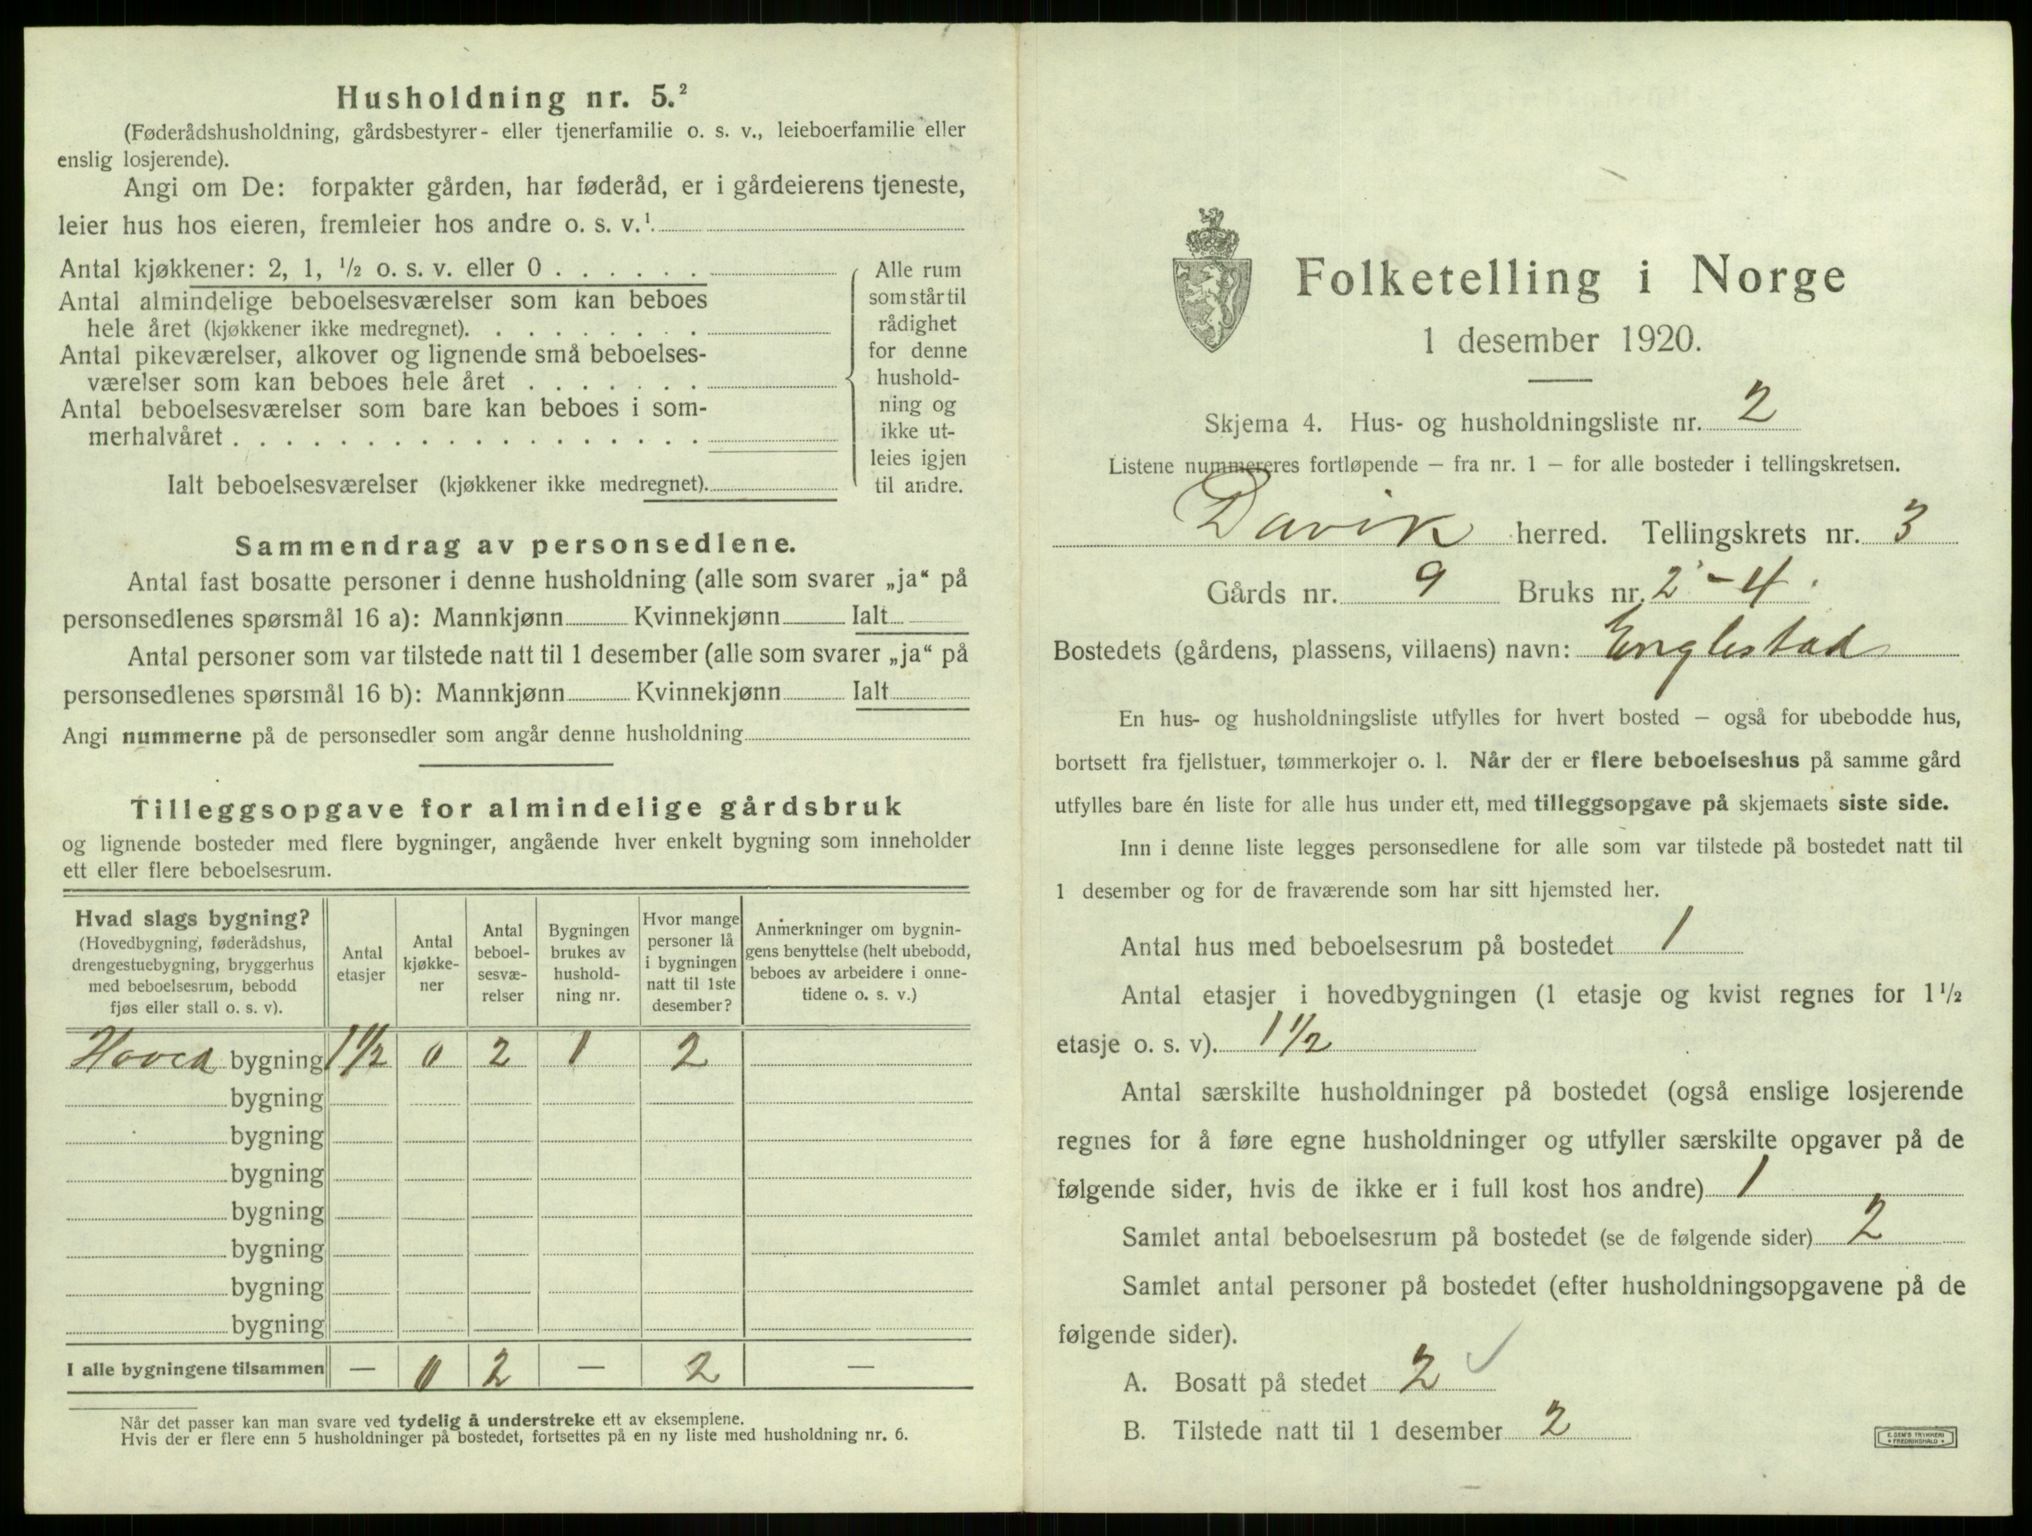 Husholdning nr. 5.²
(Føderådshusholdning, gårdsbestyrer- eller tjenerfamilie o. s. v., leieboerfamilie eller
enslig losjerende).
Angi om De: forpakter gården, har føderåd, er i gårdeierens tjeneste,
leier hus hos eieren, fremleier hos andre o. s. v.¹
Antal kjøkkener: 2, 1, ½ o. s. v. eller 0 . . . . . .
Antal almindelige beboelsesværelser som kan beboes
hele året (kjøkkener ikke medregnet). . . . . . . . .
Antal pikeværelser, alkover og lignende små beboelses-
værelser som kan beboes hele året . . . . . . .
Antal beboelsesværelser som bare kan beboes i som-
merhalvåret . . . . . . . . . . . . . . . . . .
Ialt beboelsesværelser (kjøkkener ikke medregnet).
Alle rum
som står til
rådighet
for denne
hushold-
ning og
ikke ut-
leies igjen
til andre.
Sammendrag av personsedlene.
Antal fast bosatte personer i denne husholdning (alle som svarer „ja“ på
personsedlenes spørsmål 16 a): Mannkjønn Kvinnekjønn Ialt
Antal personer som var tilstede natt til 1 desember (alle som svarer „ja“ på
personsedlenes spørsmål 16 b): Mannkjønn Kvinnekjønn Ialt
Angi nummerne på de personsedler som angår denne husholdning
Tilleggsopgave for almindelige gårdsbruk
og lignende bosteder med flere bygninger, angående hver enkelt bygning som inneholder
ett eller flere beboelsesrum.
Hvad slags bygning?
(Hovedbygning, føderådshus,
drengestuebygning, bryggerhus
med beboelsesrum, bebodd
fjøs eller stall o. s. v).
Antal
etasjer
Antal
kjøkke-
ner
Antal
beboel-
sesvæ-
relser
Bygningen
brukes av
hushold-
ning nr.
Hvor mange
personer lå
i bygningen
natt til 1ste
desember?
Anmerkninger om bygnin-
gens benyttelse (helt ubebodd,
beboes av arbeidere i onne-
tidene o. s. v.)
Hoved bygning 1½ 0 2 1 2
bygning
bygning
bygning
bygning
bygning
bygning
bygning
I alle bygningene tilsammen — 0 2 — 2 —
Når det passer kan man svare ved tydelig å understreke ett av eksemplene.
Hvis der er flere enn 5 husholdninger på bostedet, fortsettes på en ny liste med husholdning nr. 6.
Folketelling i Norge
1 desember 1920.
Skjema 4. Hus- og husholdningsliste nr. 2
Listene nummereres fortløpende — fra nr. 1 — for alle bosteder i tellingskretsen.
Davik herred. Tellingskrets nr. 3
Gårds nr. 9 Bruks nr. 2 - 4
Bostedets (gårdens, plassens, villaens) navn: Englestad
En hus- og husholdningsliste utfylles for hvert bosted — også for ubebodde hus,
bortsett fra fjellstuer, tømmerkojer o. l. Når der er flere beboelseshus på samme gård
utfylles bare én liste for alle hus under ett, med tilleggsopgave på skjemaets siste side.
Inn i denne liste legges personsedlene for alle som var tilstede på bostedet natt til
1 desember og for de fraværende som har sitt hjemsted her.
Antal hus med beboelsesrum på bostedet 1
Antal etasjer i hovedbygningen (1 etasje og kvist regnes for 1½
etasje o. s. v). 1½
Antal særskilte husholdninger på bostedet (også enslige losjerende
regnes for å føre egne husholdninger og utfyller særskilte opgaver på de
følgende sider, hvis de ikke er i full kost hos andre) 1
Samlet antal beboelsesrum på bostedet (se de følgende sider) 2
Samlet antal personer på bostedet (efter husholdningsopgavene på de
følgende sider).
A. Bosatt på stedet 2 ✓
B. Tilstede natt til 1 desember 2
E. SEM'S TRYKKERI
FREDRIKSHALD